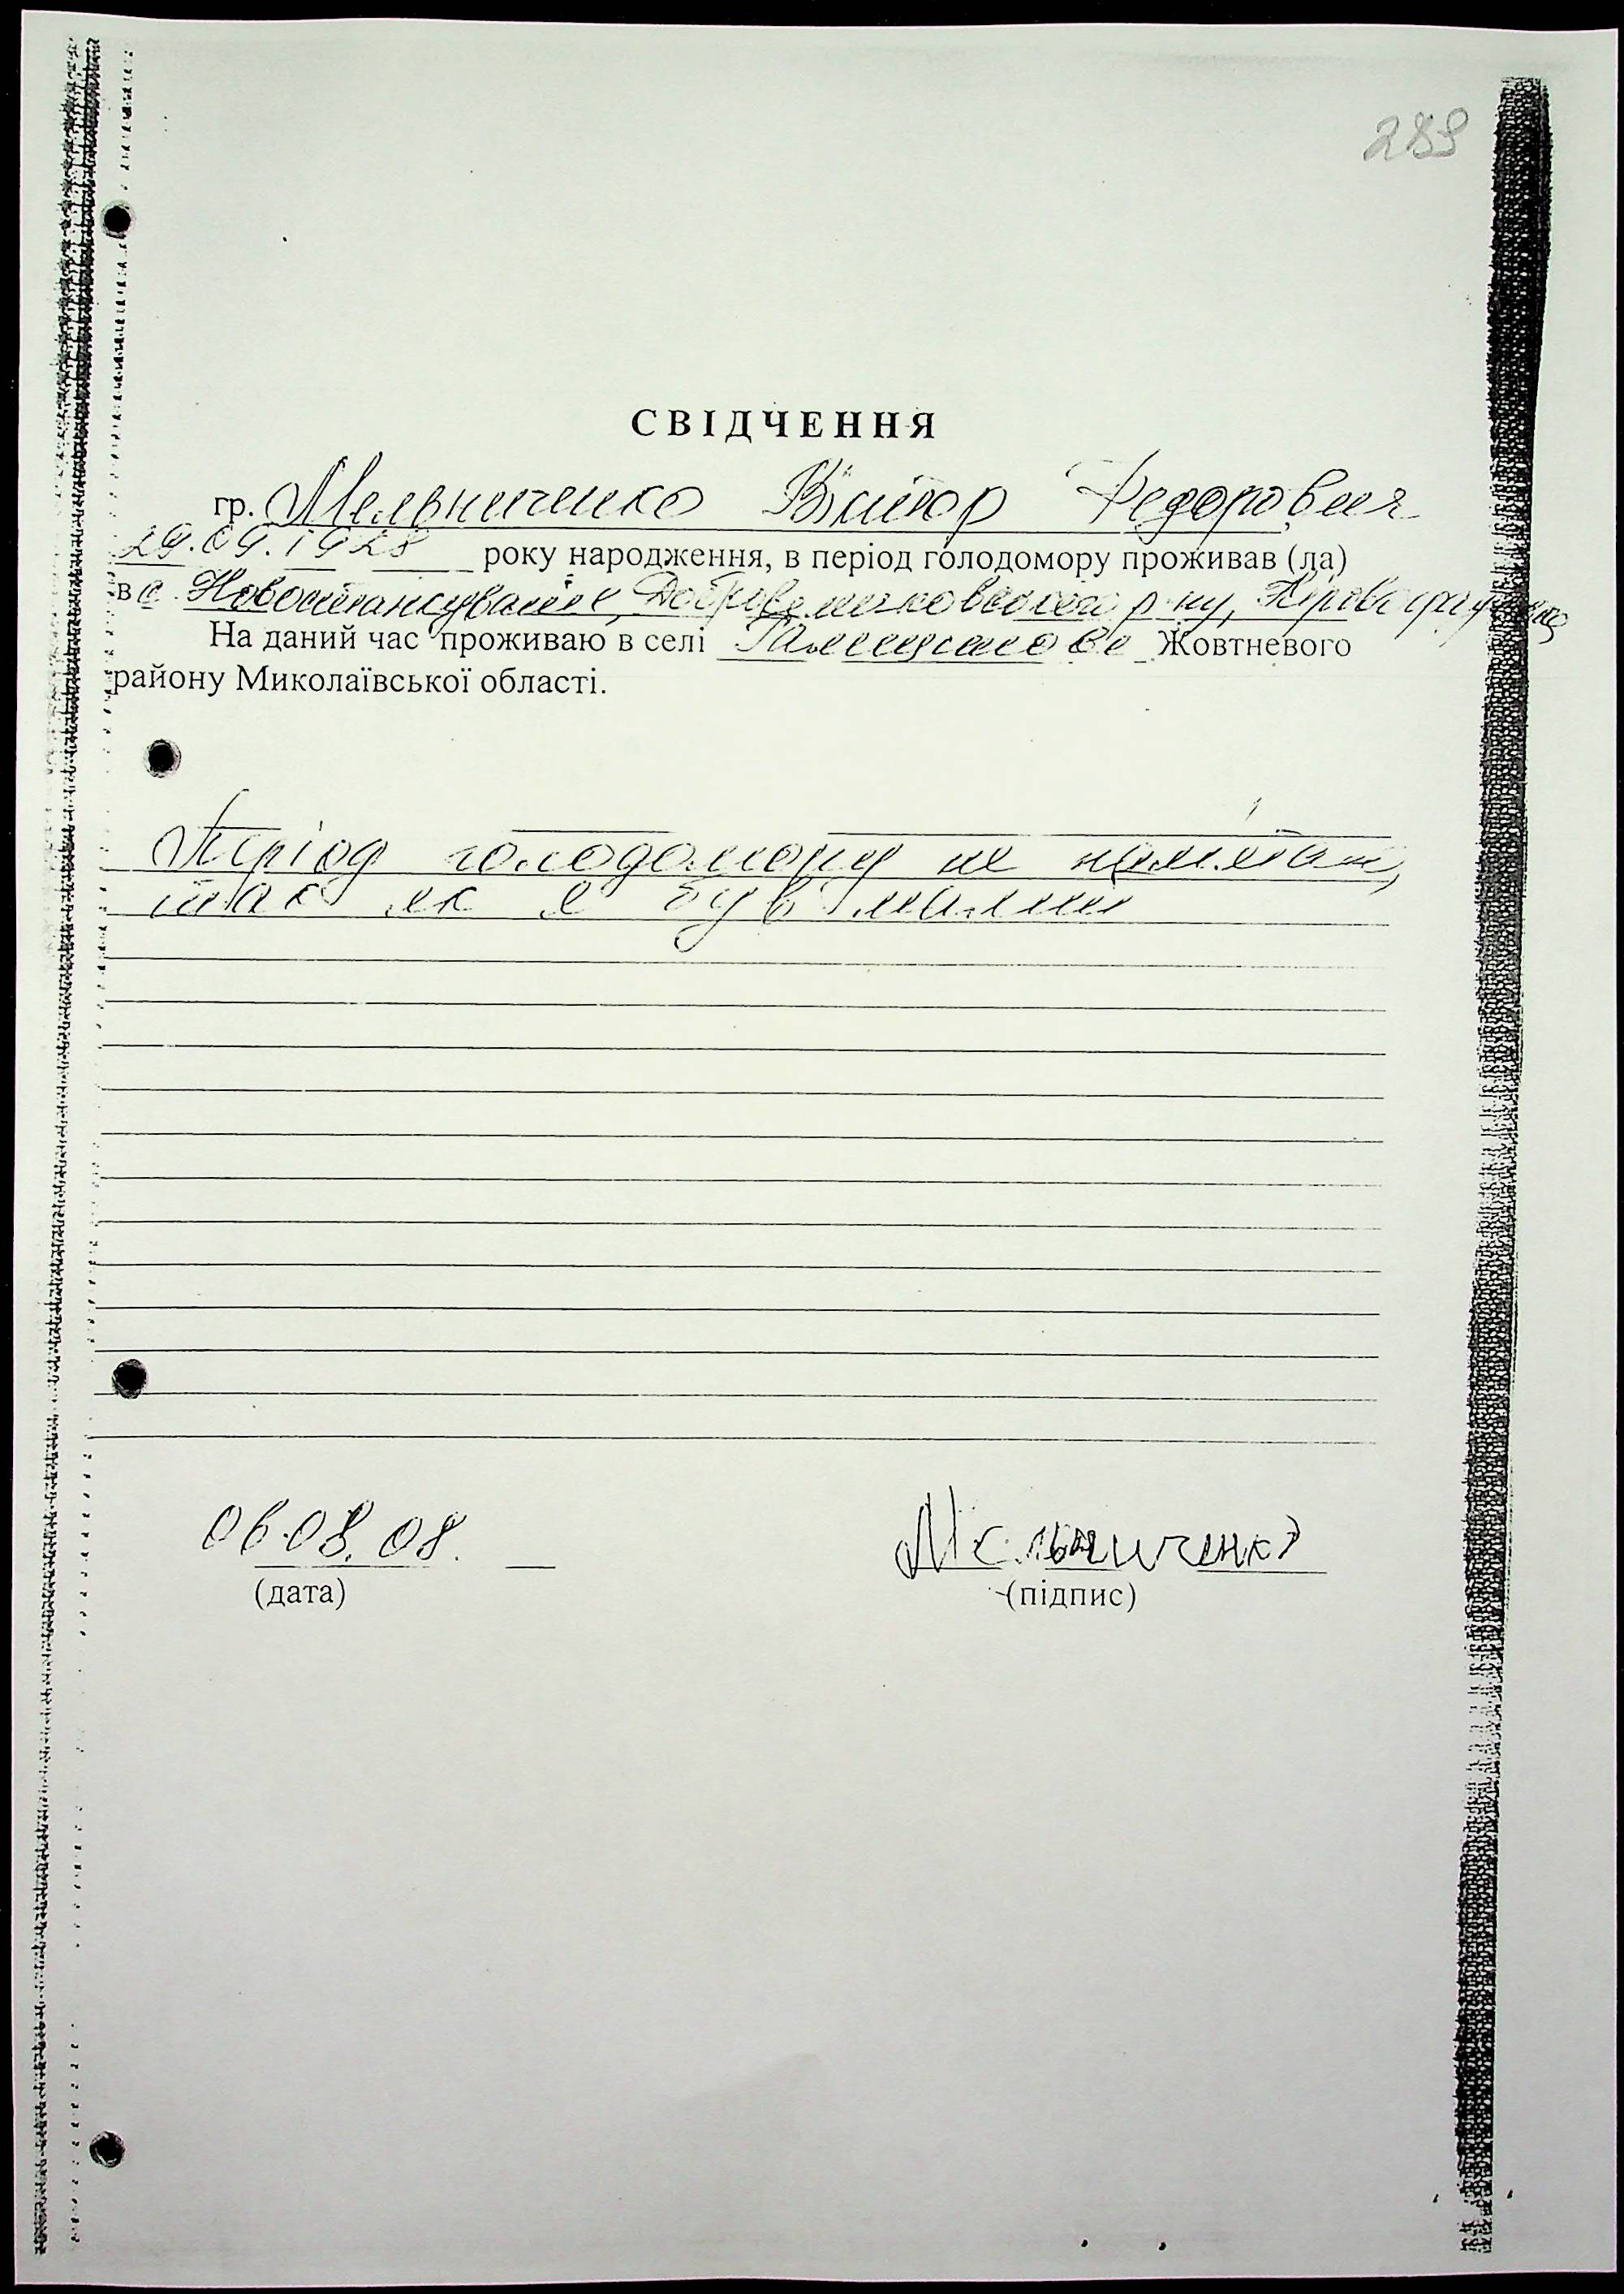 289
СВІДЧЕННЯ
гр. Мельниченко Віктор Федорович
29.09.1928 року народження, в період голодомору проживав (ла)
в с. Добровеличковського р-ну,
На даний час проживаю в селі Галицинове Жовтневого
району Миколаївської області.
Період голодомору не памятаю,
так як я був малим
06.08.08.
Мельниченко
(дата)
(підпис)